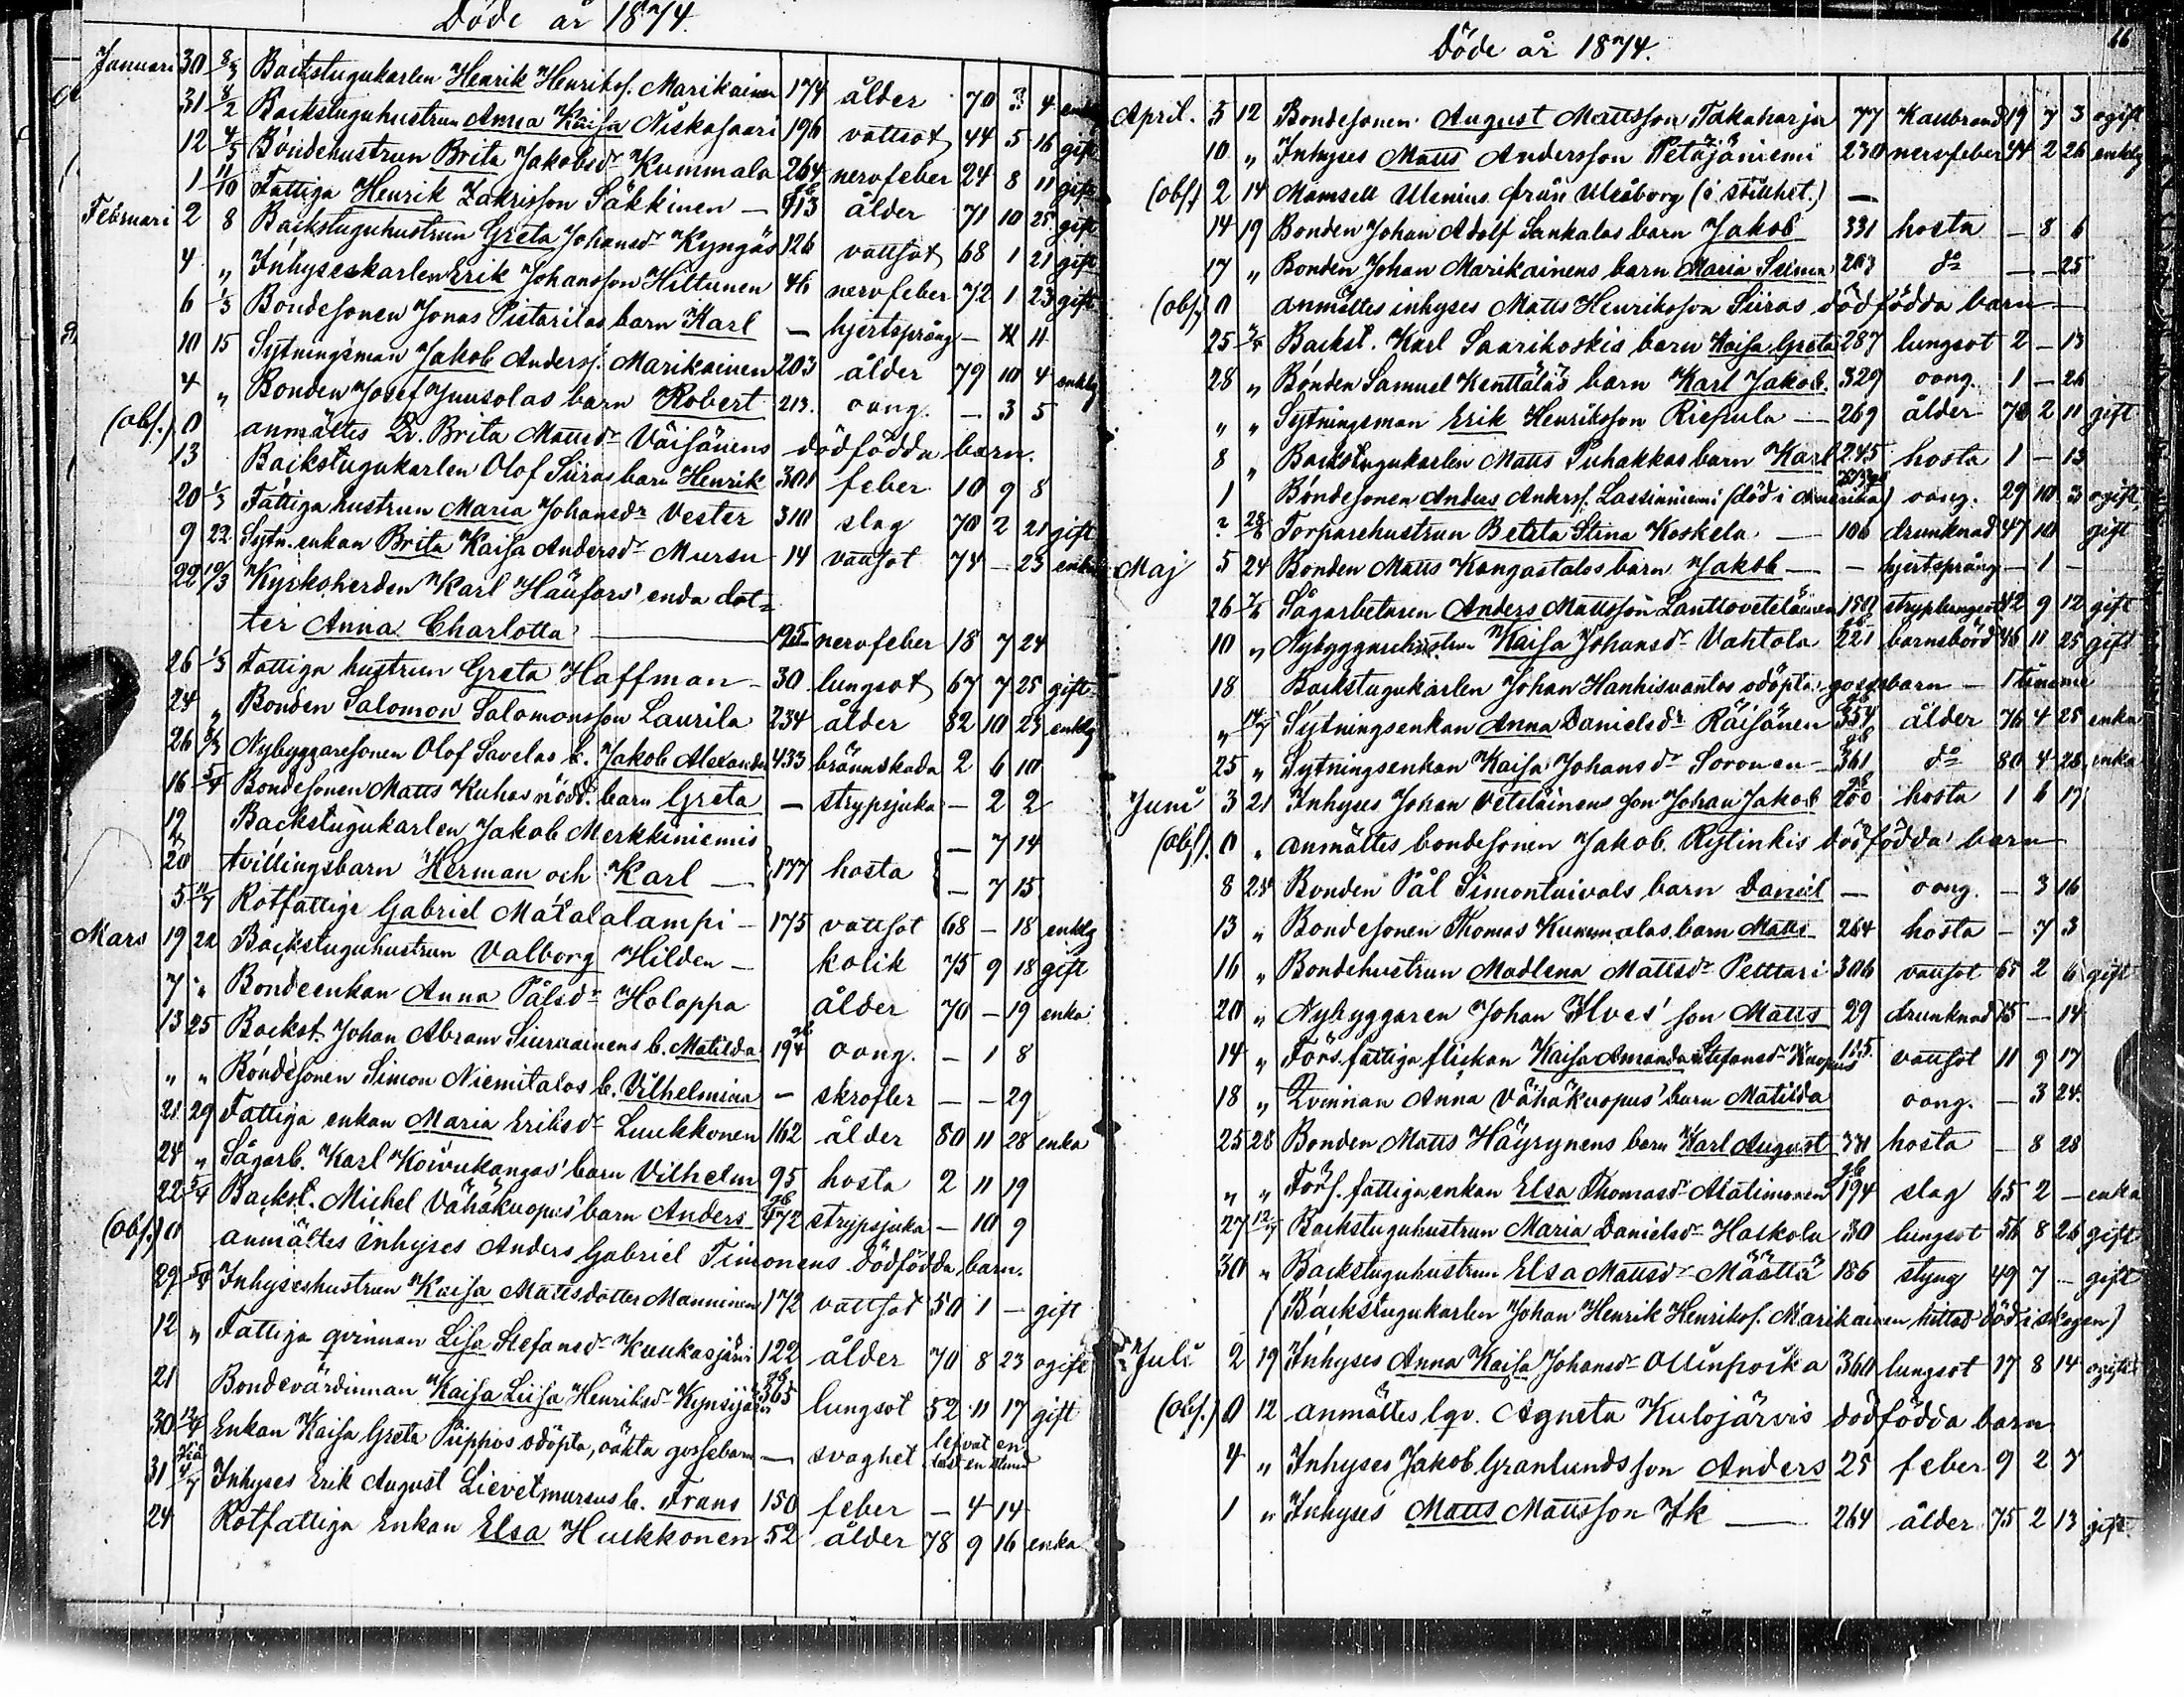 Döde år 1874.
Januari 30 8/3 Backstugukarlen Henrik Henriksf. Marikainen 174 ålder 70 3 4 enkl
31 8/2 Backstuguhustrun Anna Kaisa Niskasaari 196 vattsot 44 5 16 gift
12 4/5 Bondehustrun Brita Jakobsdr Kummala 264 nervfeber 24 8 11 gift
1 11/10 Fattiga Henrik Zakrisson Säkkinen — 913 ålder 71 10 25 gift
Februari 2 8 Backstuguhustrun Greta Johansdr Kyngäs 126 vattsot 68 1 21 gift
4 „ Inhyseskarlen Erik Johansson Hiltunen 46 nervfeber 72 1 23 gift
6 1/3 Bondesonen Jonas Pietarilas barn Karl — hjertsprång — 11
10 15 Sytningsman Jakob Anderss. Marikainen 203 ålder 79 10 4 enkl
4 „ Bonden Josef Juusolas barn Robert 213. oang. — 3 5
(obs.) 0 anmältes Qv. Brita Mattsdr Väisänens dödfödda barn.
13 Backstugukarlen Olof Siiras barn Henrik 301 feber 10 9 8
20 1/3 Fattiga hustrun Maria Johansdr Vester 310 slag 70 2 21 gift
9 22. Sytn. enkan Brita Kaisa Andersdr Mursu 14 vattsot 74 — 23 enka
22 19/3 Kyrkoherden Karl Häufors' enda dot=
ter Anna Charlotta — 195 nervfeber 18 7 24
26 1/3 Fattiga hustrun Greta Haffman — 30 lungsot 67 7 25 gift
24 „ Bonden Salomon Salomonsson Laurila 234 ålder 82 10 23 enkl
26 Nybyggaresonen Olof Savelas b. Jakob Alexander 433 brännskada 2 6 10
16 5/4 Bondesonen Matts Kuhas nödd. barn Greta — strypsjuka — 2 2
19 Backstugukarlen Jakob Merkkiniemis — 7 14
20 tvillingsbarn Herman och Karl — 177 hosta — 7 15
5 Rotfattige Gabriel Matalalampi — 175 vattsot 68 — 18 enkl
Mars 19 22 Backstuguhustrun Valborg Hilden — kolik 75 9 18 gift
7 „ Bondeenkan Anna Pålsdr Holappa ålder 70 — 19 enka
13 25 Backst. Johan Abram Siuruainens b. Matilda 194 oang. — 1 8
„ „ Bondesonen Simon Niemitalos b. Vilhelmina — skrofler — — 29
21 29 Fattiga enkan Maria Eriksdr Luukkonen 162 ålder 80 11 28 enka
24 „ Sågarb. Karl Koivukangas' barn Vilhelm 95 hosta 2 11 19
22 5/4 Backst. Michel Vähäkuopus' barn Anders 472 strypsjuka — 10 9
(obs.) 0 anmältes inhyses Anders Gabriel Timonens dödfödda barn.
29 5/4 Inhyseshustrun Kaisa Mattsdotter Manninen 172 vattsot 50 1 — gift
12 „ Fattiga qvinnan Lisa Stefansdr Kuukasjärvi 122 ålder 70 8 23 ogift
21 Bondevärdinnan Kaisa Liisa Henriksdr Kynsijärvi 365 lungsot 52 11 17 gift
30 12/4 Enkan Kaisa Greta Piippos odöpta, oäkta gossebarn — svaghet lefvat en=
dast en stund
31 Inhyses Erik August Lievetmursus b. Frans 150 feber — 4 14
24 Rotfattiga Enkan Elsa Hukkonen 52 ålder 78 9 16 enka
66
Döde år 1874.
April. 5 12 Bondesonen August Mattsson Takaharju 77 Kallbrand 19 7 3 ogift
10 „ Inhyses Matts Andersson Petäjäniemi 230 nervfeber 44 2 26 enklg
(obs) 2 14 Mamsell Ulenius från Uleåborg (i stillhet.) —
14 19 Bonden Johan Adolf Sankalas barn Jakob 331 hosta — 8 6
17 „ Bonden Johan Marikainens barn Maria Selma 203 do — — 25
(obs) 0 anmältes inhyses Matts Henriksson Siiras dödfödda barn —
25 Backst. Karl Saarikoskis barn Kaisa Greta 287 lungsot 2 — 13
28 „ Bonden Samuel Kenttäläs barn Karl Jakob. 329 oang. 1 — 26
„ „ Sytningsman Erik Henriksson Riepula — 269 ålder 72 2 11 gift
8 „ Backstugukarlen Matts Puhakkas barn Karl 245 hosta 1 — 13
1 Bondesonen Anders Anderss. Lassiniemi (död i Amerika) oang. 29 10 3 ogift
? 28/8 Torparehustrun Betsta Stina Koskela. — 106 drunknad 47 10 gift
Maj 5 24 Bonden Matts Kangastalos barn Jakob — — hjertsprång — 1 —
26 Sågarbetaren Anders Mattsson Lanttoveteläinen 150 stryplungsot 42 9 12 gift
10 „ Nybyggarehustrun Kaisa Johansdr Vahtola 221 barnsbörd 46 11 25 gift
18 Backstugukarlen Johan Hanhisuantos odöpta gossebarn — 1 timme
„ 14/7 Sytningsenkan Anna Danielsdr Räisänen 354 ålder 76 4 25 enka
25 „ Sytningsenkan Kaisa Johansdr Soronen — 361 do 80 4 28 enka
Juni 3 21 Inhyses Johan Veteläinens son Johan Jakob 200 hosta 1 6 17
(obs). 0 „ anmältes bondesonen Jakob. Ristinkis dödfödda barn —
8 24 Bonden Pål Simontaivals barn Daniel — oang. — 3 16
13 „ Bondesonen Thomas Kummalas. barn Matts 264 hosta — 7 3
16 „ Bondehustrun Madlena Mattsdr Pelttari 306 vattsot 65 2 6 gift
20 „ Nybyggaren Johan Ilves' son Matts 29 drunknad 15 — 14
14 „ Förs. fattiga flickan Kaisa Amanda Stefansdr Kuopus 115. vattsot 11 9 17
18 „ Qvinnan Anna Vähäkuopus' barn Matilda oang. — 3 24.
25 28 Bonden Matts Häyrynens barn Karl August 331 hosta — 8 28
„ „ Förs. fattiga enkan Elsa Thomasdr Alatimonen 194 slag 65 2 — enka
27 12/7 Backstuguhustrun Maria Danielsdr Haskola 30 lungsot 56 8 26 gift
30 „ Backstuguhustrun Elsa Mattsdr Määttä 186 styng 49 7 — gift
(Backstugukarlen Johan Henrik Henriksf. Marikainen, hittad död i skogen)
Juli 2 19 Inhyses Anna Kaisa Johansdr Ollinpoika 360 lungsot 17 8 14 ogift
(obs.) 0 12 anmältes lqv. Agneta Kulojärvis dödfödda barn
4 „ Inhyses Jakob Granlunds son Anders 25 feber 9 2 7
1 „ Inhyses Matts Mattsson Ik — 264 ålder 75 2 13 gift